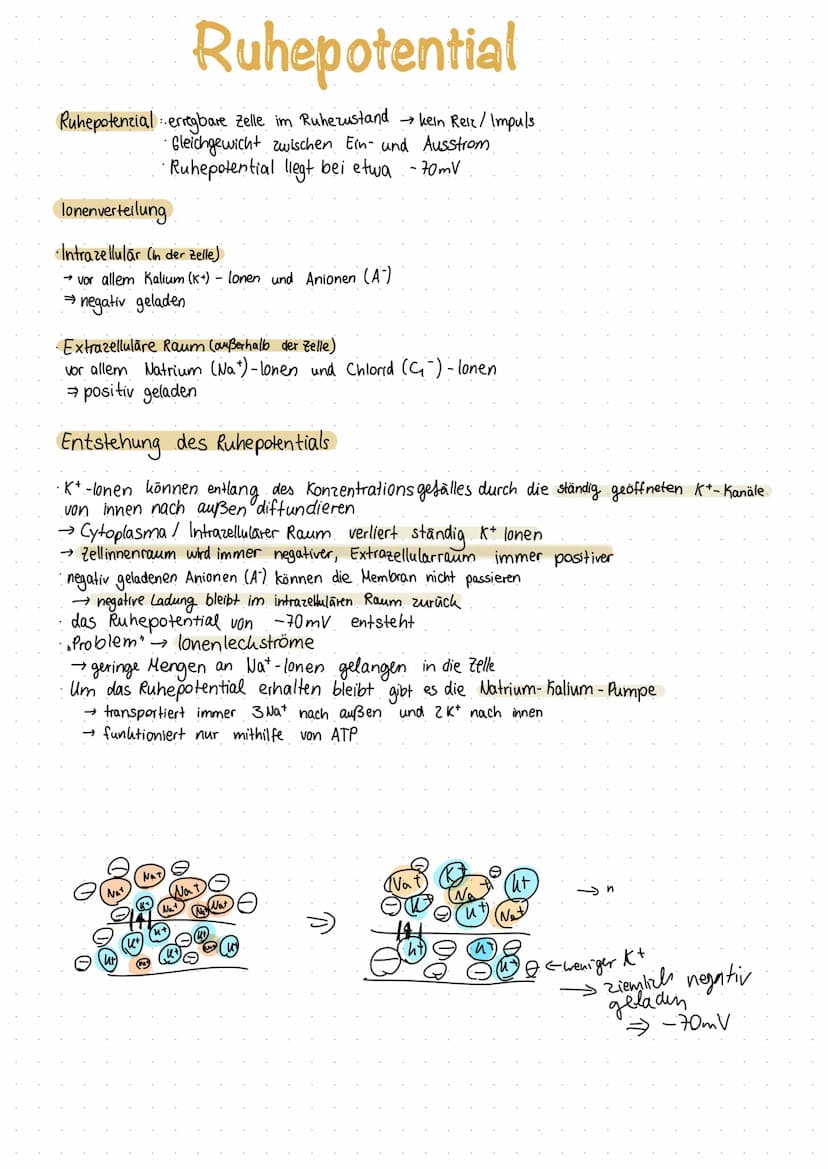 Ruhepotential
Ruhepotenzial : · erregbare Zelle im Ruhezustand → kein Reiz / Impuls
· Gleichgewicht zwischen Ein- und Ausstrom
· Ruhepotential liegt bei etwa -70mV
Ionenverteilung
· Intrazellulär (in der Zelle)
→ vor allem Kalium (K+) - Ionen und Anionen (A⁻)
⇒ negativ geladen
· Extrazelluläre Raum (außerhalb der Zelle)
vor allem Natrium (Na⁺)-Ionen und Chlorid (Cl⁻) - Ionen
⇒ positiv geladen
Entstehung des Ruhepotentials
· K⁺-Ionen können entlang des Konzentrationsgefälles durch die ständig geöffneten K⁺-Kanäle
von innen nach außen diffundieren
→ Cytoplasma / Intrazellulärer Raum verliert ständig K⁺ Ionen
→ Zellinnenraum wird immer negativer, Extrazellularraum immer positiver
· negativ geladenen Anionen (A⁻) können die Membran nicht passieren
→ negative Ladung bleibt im intrazellulären Raum zurück
· das Ruhepotential von -70mV entsteht
· „Problem" → Ionenleckströme
→ geringe Mengen an Na⁺-Ionen gelangen in die Zelle
· Um das Ruhepotential erhalten bleibt gibt es die Natrium-Kalium-Pumpe
→ transportiert immer 3Na⁺ nach außen und 2K⁺ nach innen
→ funktioniert nur mithilfe von ATP
Na+ Na+ Na+ K+ Na+ Na+ Na+
K+ K+ K+ K+ K+ K+ Na+ Na+
⇒
Na+ K+ Na+ K+ K+ K+ Na+
→ n
K+ K+ K+
← weniger K+
→ ziemlich negativ
geladen
⇒ -70mV